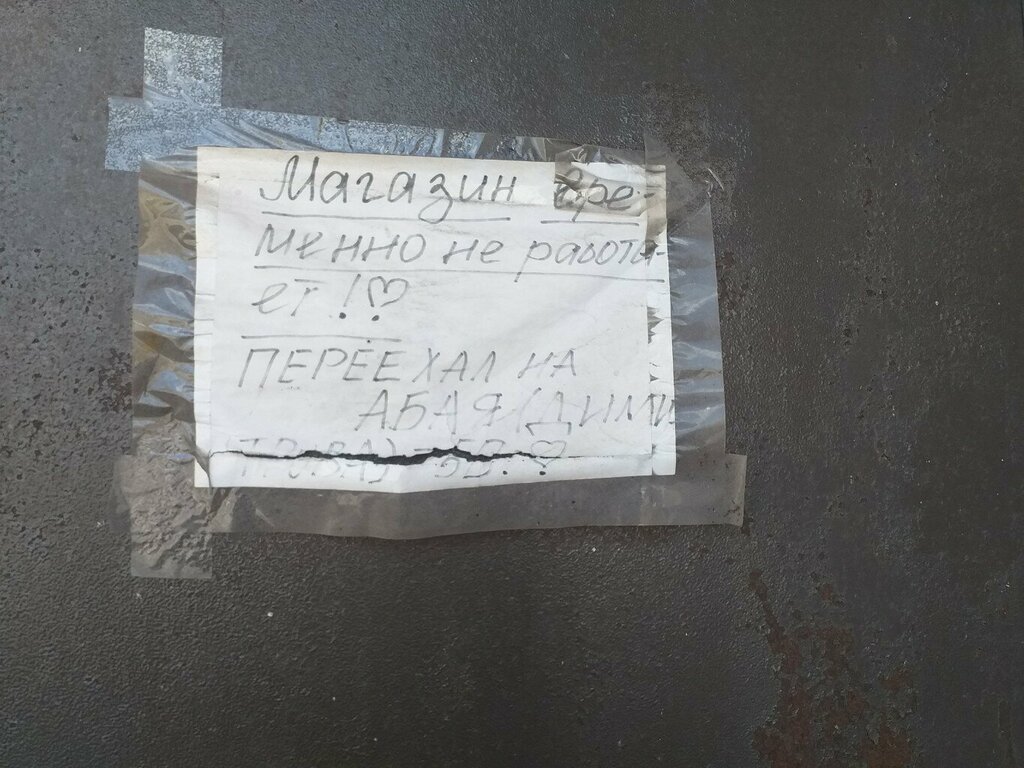 Магазин вре-
менно не работа-
ет!♡
ПЕРЕЕХАЛ НА
АБАЯ (ДИМИ
ТРОВА)